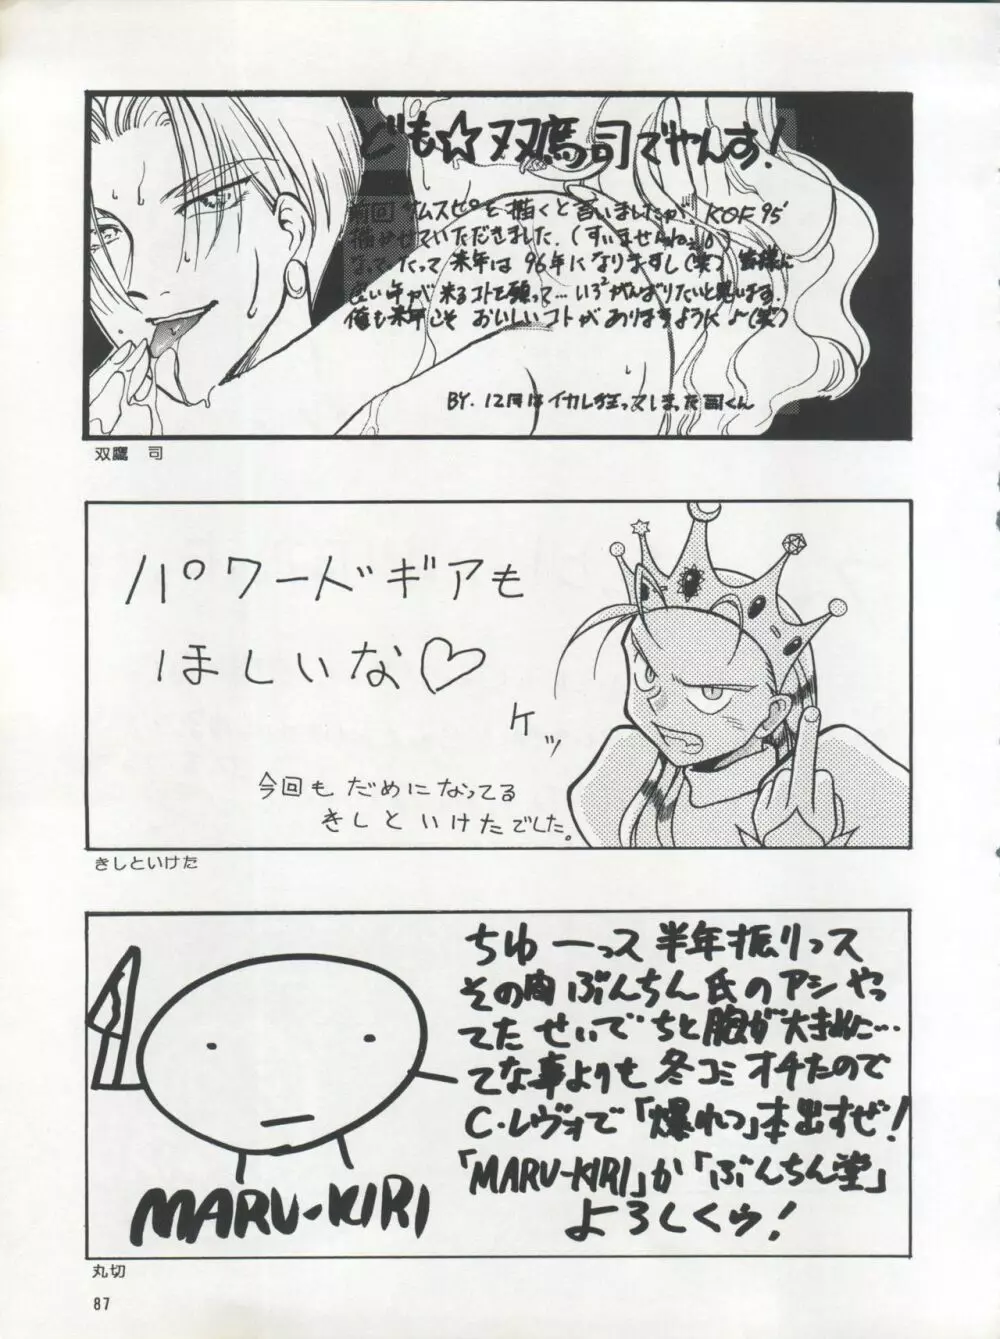 ども☆双鷹司でやんす!
前回サムスピを描くと言いましたが、KOF95'
描かせていただきました.(すいませんねェ)
なってたって来年は96年になりますし(笑) 皆様に
良い年が来るコトを願って…いろ2がんばりたいと思います.
俺も来年こそおいしいコトがありますように♪〜(笑)
BY. 12月はイカレ狂ってしまった司くん
双鷹 司
パワードギアも
ほしいな♡
ケッ
今回もだめになってる
きしといけたでした。
きしといけた
ちゆーっス 半年振りっス
その間ぶんちん氏のアシやっ
てた せいで ちと胸が大きめに…
てな事よりも 冬コミ オチたので
C・レヴォで「爆れつ」本出すぜ!
「MARU-KIRI」か「ぶんちん堂」
よろしくゥ!
MARU-KIRI
丸切
87